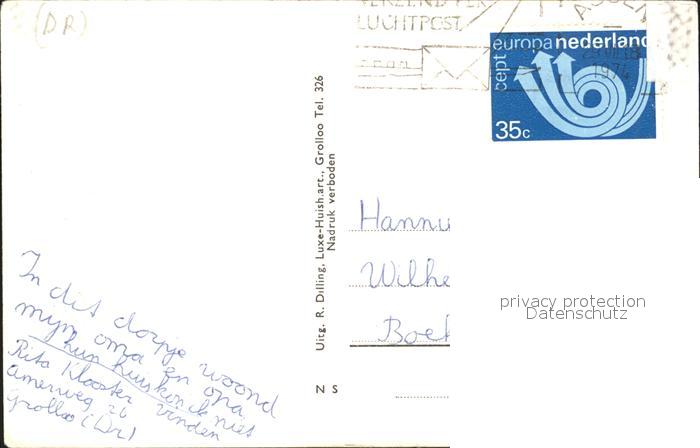 (DR)
VERZENDT PER
LUCHTPOST
ASSEN
europa nederland
cept
1974
35c
Uitg. R. Dilling, Luxe-Huish.art., Grolloo Tel. 326
Nadruk verboden
Hannu
Wilhe
Boek
privacy protection
Datenschutz
In dit dorpje woond
mijn oma en opa
hun huis kon ik niet
vinden
Rita Klooster
Amerweg 26
Grolloo (Dr)
N S